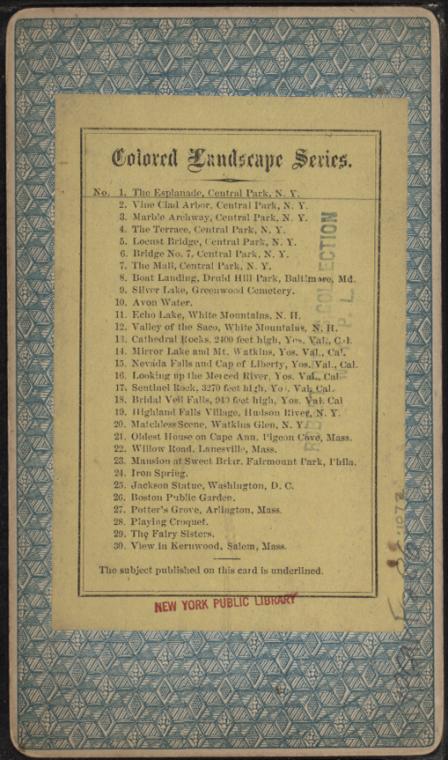 Colored Landscape Series.
No. 1. The Esplanade, Central Park, N. Y.
2. Vine Clad Arbor, Central Park, N. Y.
3. Marble Archway, Central Park, N. Y.
4. The Terrace, Central Park, N. Y.
5. Locust Bridge, Central Park, N. Y.
6. Bridge No. 7, Central Park, N. Y.
7. The Mall, Central Park, N. Y.
8. Boat Landing, Druid Hill Park, Baltimore, Md.
9. Silver Lake, Greenwood Cemetery.
10. Avon Water.
11. Echo Lake, White Mountains, N. H.
12. Valley of the Saco, White Mountains, N. H.
13. Cathedral Rocks, 2400 feet high, Yos. Val., Cal.
14. Mirror Lake and Mt. Watkins, Yos. Val., Cal.
15. Nevada Falls and Cap of Liberty, Yos. Val., Cal.
16. Looking up the Merced River, Yos. Val., Cal
17. Sentinel Rock, 3270 feet high, Yos. Val. Cal.
18. Bridal Veil Falls, 940 feet high, Yos. Val. Cal
19. Highland Falls Village, Hudson River, N. Y.
20. Matchless Scene, Watkins Glen, N. Y.
21. Oldest House on Cape Ann, Pigeon Cove, Mass.
22. Willow Road, Lanesville, Mass.
23. Mansion at Sweet Briar, Fairmount Park, Phila.
24. Iron Spring.
25. Jackson Statue, Washington, D. C.
26. Boston Public Garden.
27. Potter's Grove, Arlington, Mass.
28. Playing Croquet.
29. The Fairy Sisters.
30. View in Kernwood, Salem, Mass.
The subject published on this card is underlined.
NEW YORK PUBLIC LIBRARY
COLLECTION
P. L.